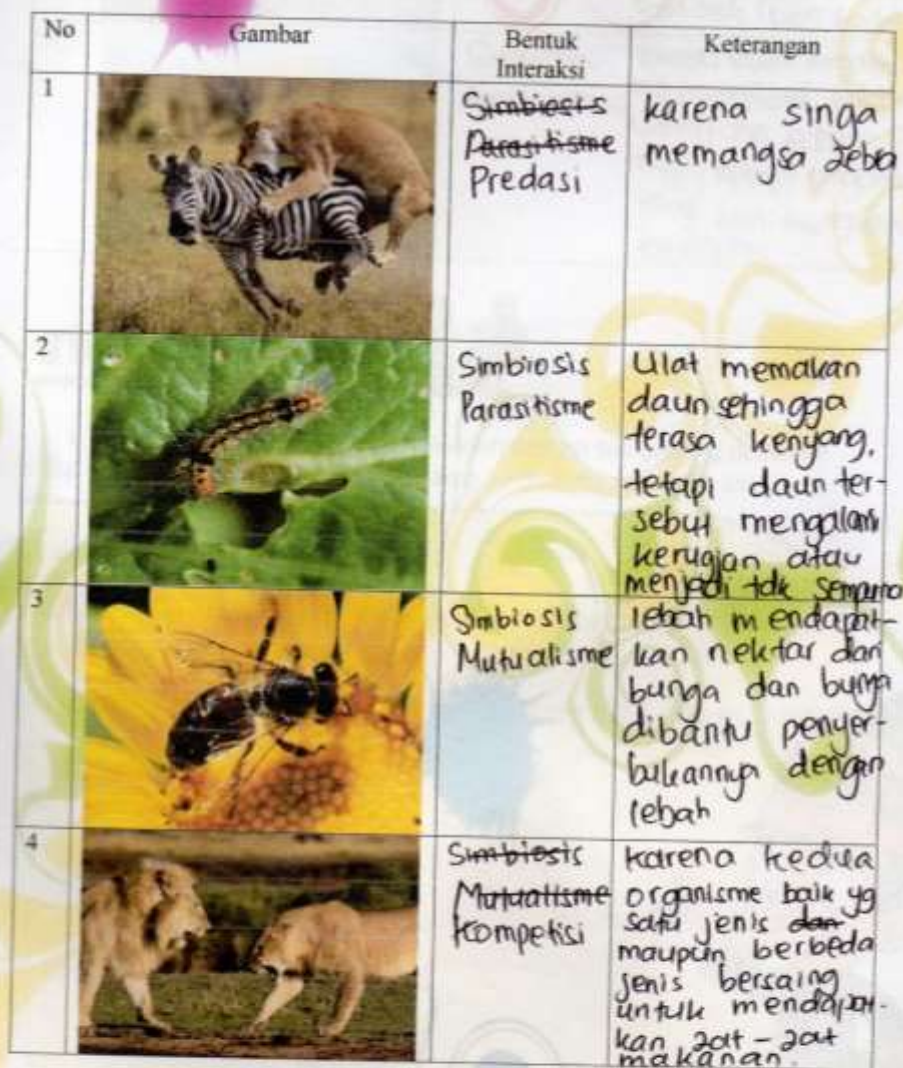 No Gambar Bentuk Interaksi Keterangan
1
Simbiosis
Parasitisme
Predasi
karena singa
memangsa zebra
2
Simbiosis
Parasitisme
Ulat memakan
daun sehingga
terasa kenyang,
tetapi daun ter-
sebut mengalami
kerugian atau
menjadi tdk sempurna
3
Simbiosis
Mutualisme
lebah mendapat-
kan nektar dari
bunga dan bunga
dibantu penyer-
bukannya dengan
lebah
4
Simbiosis
Mutualisme
Kompetisi
karena kedua
organisme baik yg
satu jenis dan
maupun berbeda
jenis bersaing
untuk mendapat-
kan zat-zat
makanan.